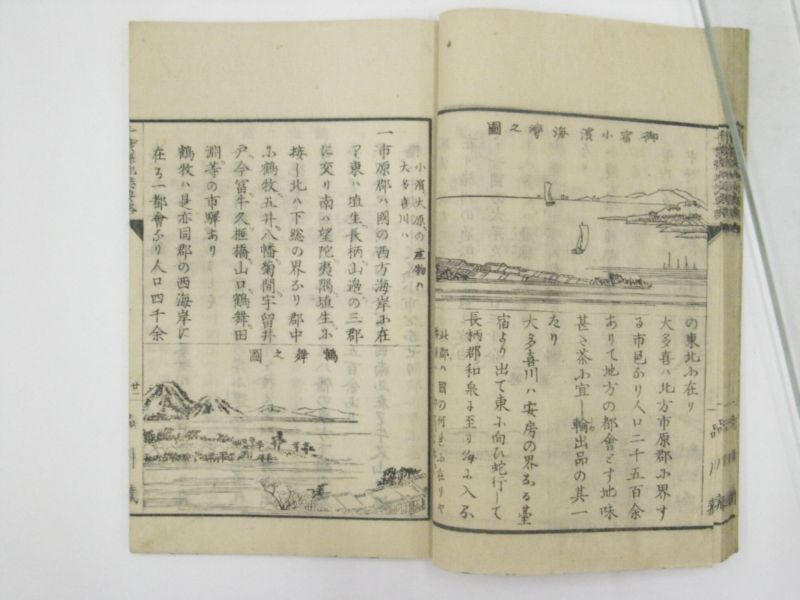 御宿小濱海灣之圖
の東北ふ在り
大多喜ハ北方市原郡ふ界す
る市邑なり人口二千五百余
ありて地方の都會とす地味
甚さ茶ふ宜し輸出品の其一
たり
大多喜川ハ安房の界なる臺
宿より出て東ふ向ひ蛇行して
長柄郡和泉に至り海ふ入る
此郡ハ國の何邊ふ在りや
小濱大原の産物ハ
大多喜川ハ
一市原郡ハ國の西方海岸ふ在
て東ハ埴生長柄山邉の三郡
に交り南ハ望陀夷隅埴生ふ
接し北ハ下総の界なり郡中
ふ鶴牧五井八幡菊間宇留井
戸今冨牛久根橋山口鶴舞田
淵等の市驛あり
鶴牧ハ是亦同郡の西海岸に
在る一都會なり人口四千余
鶴舞之圖
廿二